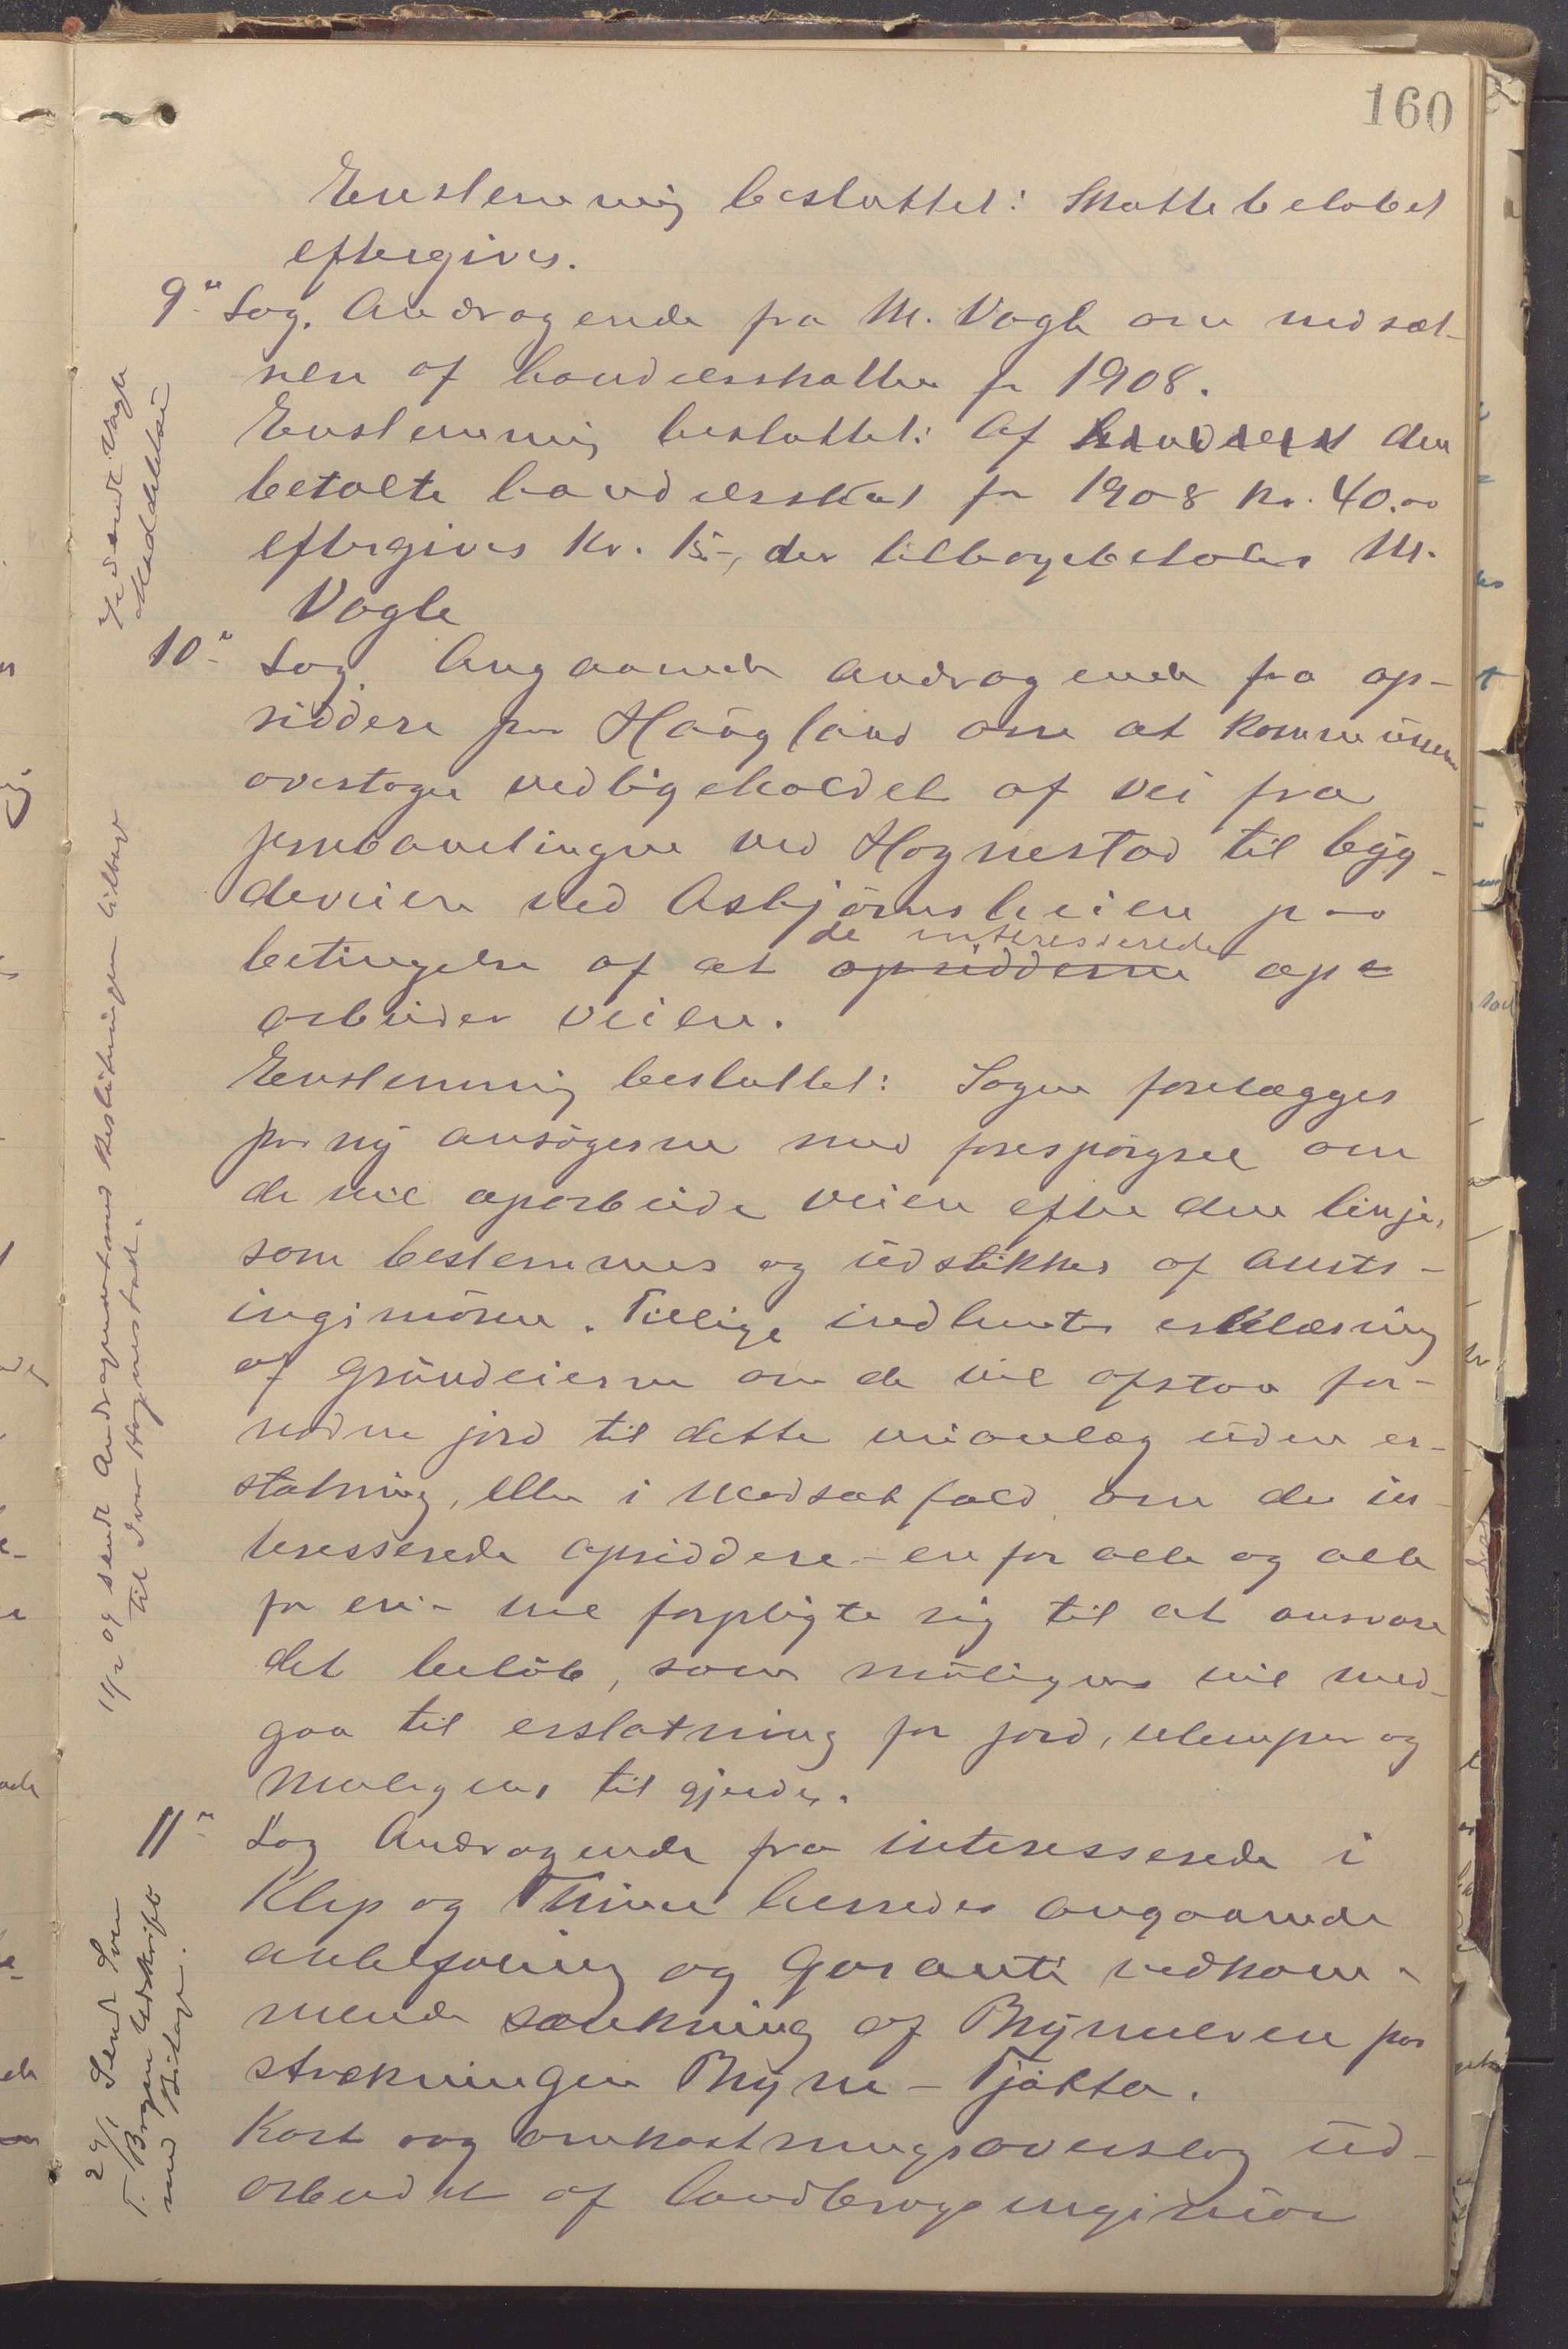 160
Enstemmig besluttet: Skattebeløbet
eftergives.
9de Sag. Andragende fra M. Vagle om nedsæt-
telse af handelsskatten for 1908.
Enstemmig besluttet: Af den
betalte handelsskat for 1908 Kr. 40.00
eftergives Kr. 15-, der tilbagebetales M.
Vagle
10de Sag. Angaaende andragende fra op-
siddere paa Haugland om at kommunen
overtager vedligeholdet af vei fra
jernbanelinjen ved Hognestad til byg-
deveien ved Asbjørnsheien paa
betingelse af at opsidderne de interesserede op-
arbeider veien.
Enstemmig besluttet: Sagen forelægges
paa ny ansøgerne med forespørgsel om
de vil oparbeide veien efter den linje,
som bestemmes og udstikkes af amts-
ingeniøren. Tillige indhentes erklæring
af grundeierne om de vil afstaa for-
nøden jord til dette veianlæg uden er-
statning, eller i modsat fald om de in-
teresserede opsiddere - en for alle og alle
for en - vil forpligte sig til at ansvare
det beløb, som muligens vil med-
gaa til erstatning for jord, ulemper og
muligens til gjerder.
11te Sag Andragende fra interesserede i
Klep og Thime herreder angaaende
anbefaling og garanti vedkom-
mende sænkning af Bryneelven paa
strækningen Bryne - Tjøtta.
Kart og omkostningsoverslag ud-
arbeidet af landbrugsingeniør
sendt Vagle
Meddelelse
11/2 og sendt Andragendet med Beslutningen tilbage
til Ivar Hognestad.
29/1 Sendt Sven
T. Bryne Udskrift
med Bilage.